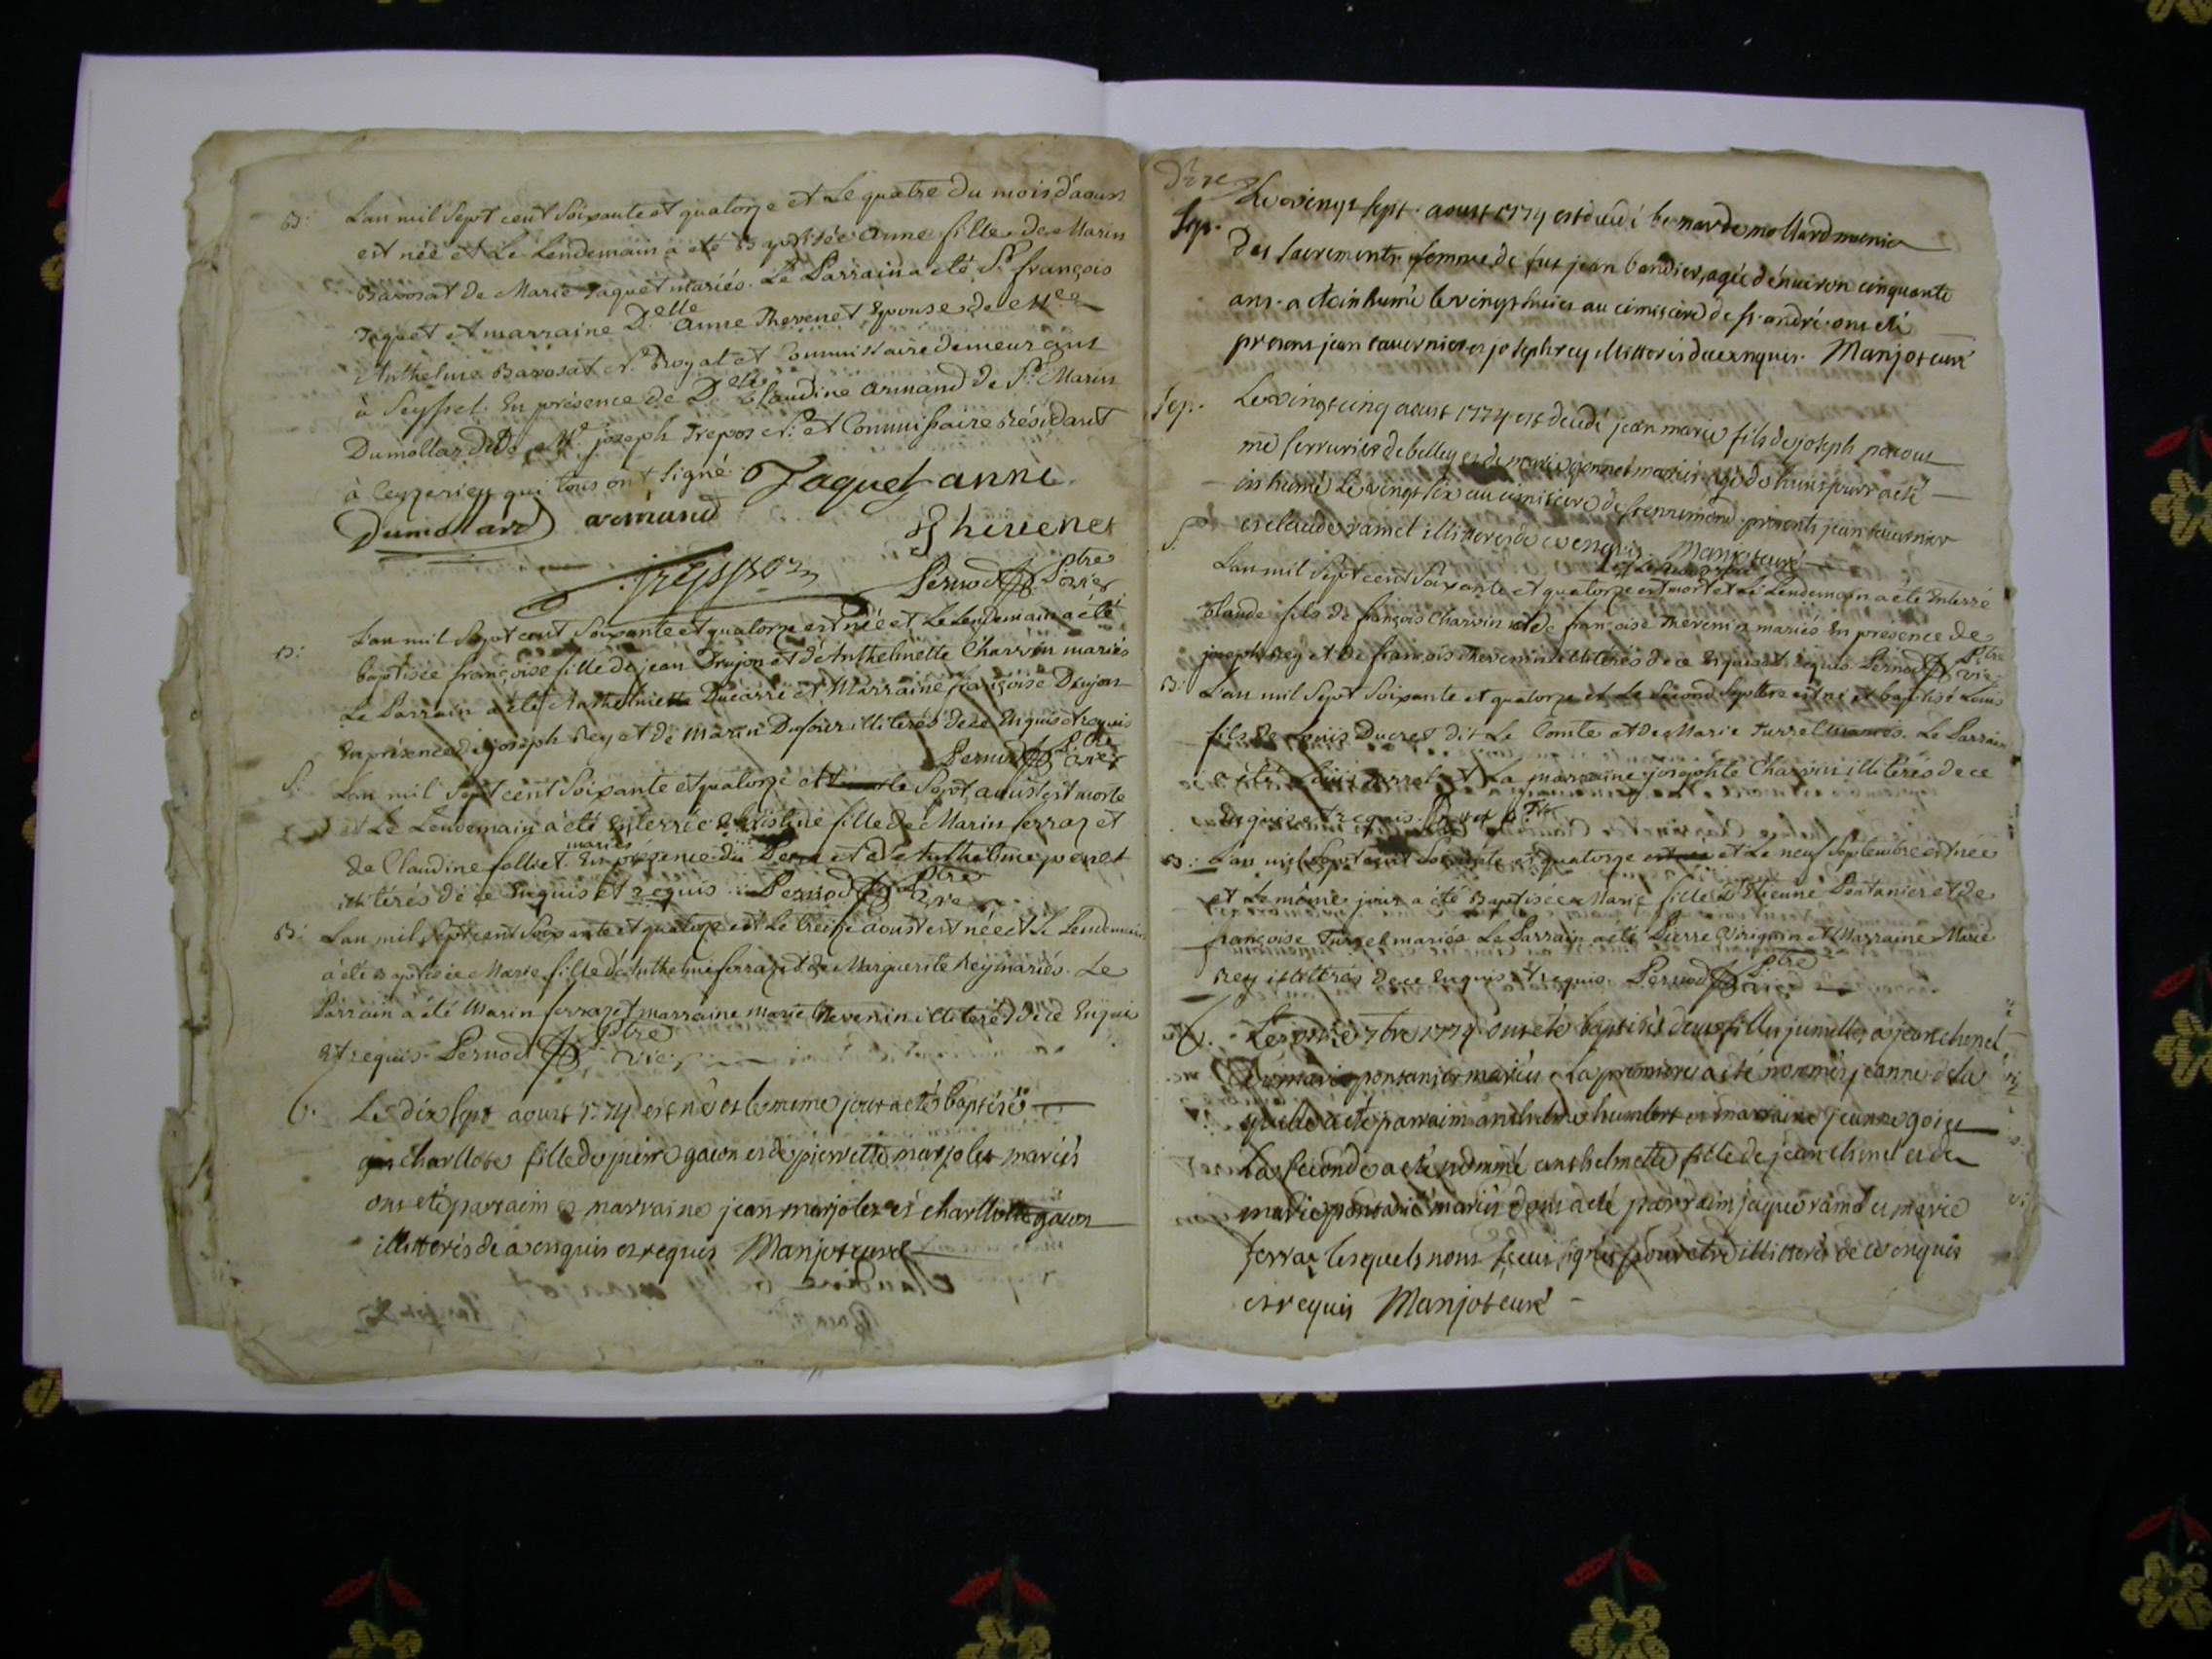 B: Lan mil Sept cent Soixante et quatorze et Le quatre du mois d'aoust
est née et Le Lendemain a été Baptisée anne fille de Marin
Barosat de Marie Jaquet mariés. Le Parrain a été Sr. françois
Jaquet et marraine Delle anne Thevenet Epouse de
Anthelme Barosat Nre. Royal et Commissaire demeurant
à Seyssel. En présence de Delle Claudine armand de St. Marin
Dumollard de Mr. joseph Trepoz Nre. et Commissaire Résidant
à Ceyzerieu qui tous ont signé Jaquet anne
Dumolard armand Thevenet
Pernod Ptre vic
B: Lan mil Sept cent Soixante et quatorze est née et Le Lendemain a été
baptisée françoise fille de jean Drujon et d'Anthelmette Charvin mariés
Le Parrain a été Anthelmette Ducarre et Marraine françoise Drujon
En présence de joseph Rey et de Marin Dufour illiterés de ce Enquis et requis
Pernod Ptre vic
S. Lan mil Sept cent Soixante et quatorze et le Sept aoust est morte
et Le Lendemain a été Enterrée Christine fille de Marin ferraz et
mariés
de Claudine folliet. En présence du et de Anthelme
illiterés de ce Enquis et requis Pernod Ptre vic
B: Lan mil Sept cent Soixante et quatorze et Le treize aoust est née et Le Lendemain
a été Baptisée Marie fille d'Anthelme ferraz et de Marguerite Rey mariés. Le
Parrain a été Marin ferraz et marraine marie thevenin illiterés de ce Enquis
et requis. Pernod Ptre vic
b. Le dix sept aoust 1774 est né et le meme jour a eté baptisé
charllote fille de pierre gacon et de pierrette marjolet mariés
ont eté parrain et marraine jean marjolet et charllotte gacon
illitterés de ce enquis et requis Manjot curé
Sep. Le vingt sept aoust 1774 est decedé bernarde mollard munie
des sacrements femme de fut jean bendier, agée d'environ cinquante
ans. a eté inhumé le vingt huit au cimitiere de st. andré. ont eté
presents jean tavernier et joseph rey illitterés de ce enquis. Manjot curé
Sep. Le vingt cinq aoust 1774 est decedé jean marie fils de joseph
me serrurier de belley et de mariés agé de huit jours a eté
inhumé Le vingt six au cimitiere de presents jean tavernier
et claude ramel illitterés de ce enquis. Manjot curé
S. Lan mil Sept cent Soixante et quatorze est mort et Le Lendemain a été Enterré
Claude fils de françois Charvin et de françoise Thevenin mariés En présence de
joseph Rey et de françois Thevenin illiterés de ce Enquis et requis Pernod Ptre vic
B: Lan mil Sept Soixante et quatorze et Le Second Septbre est né et baptisé Louis
fils de Louis Ducret dit Le Comte et de Marie Turrel mariés. Le Parrain
a été Louis turrel et La marraine josephte Charvin illiterés de ce
Enquis et requis.
B: Lan mil Sept cent Soixante et quatorze et Le neuf Septembre est née
et Le même jour a été Baptisée Marie fille d'Etienne Pontanier et de
françoise Turrel mariés Le Parrain a été Pierre et Marraine Marie
Rey illiterés de ce Enquis et requis. Pernod Ptre vic
b. Le 7bre 1774 ont eté baptisés deux filles jumelles a jean
et marie pontanier mariés La premiere a eté nommée jeanne de la
quelle a eté parrain anthelme humbert et marraine jeanne
La seconde a eté nommé anthelmette fille de jean et de
marie pontanier mariés dont a eté parrain jaques ramel et marie
ferraz lesquels nont sceu signer pour etre illitterés de ce enquis
et requis Manjot curé